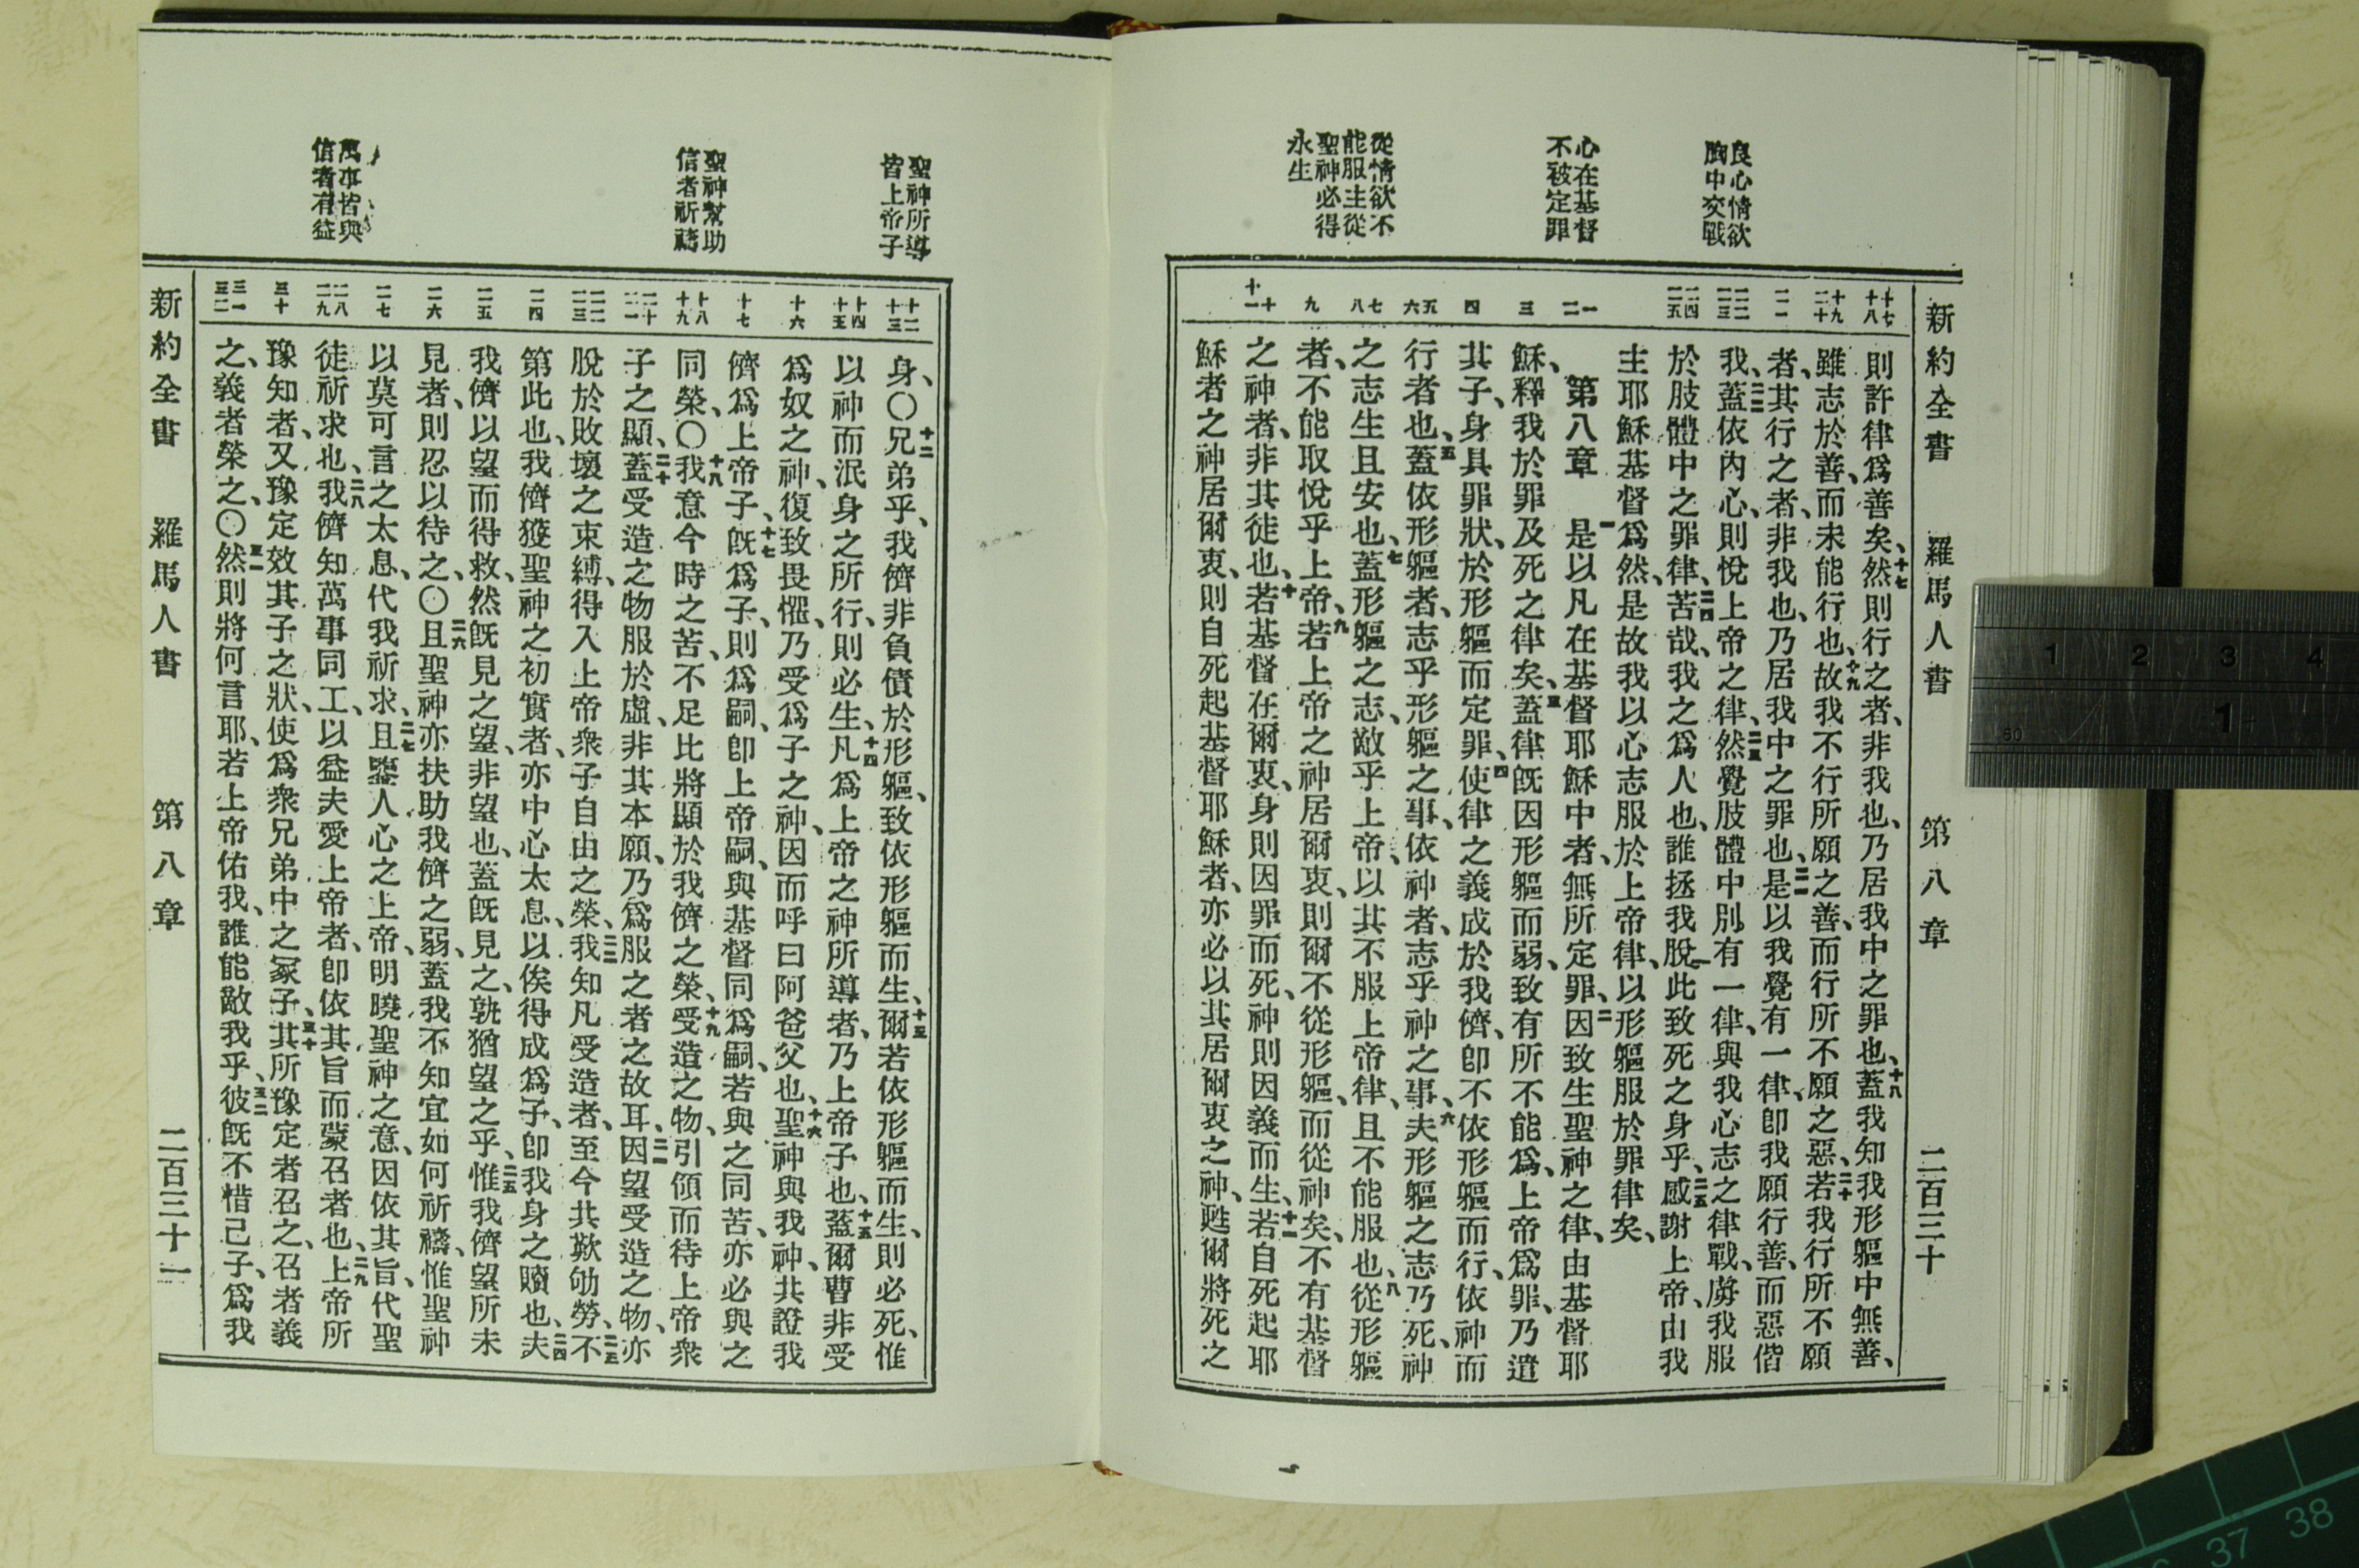 新約全書 羅馬人書 第八章 二百三十
良心情欲
胸中交戰
心在基督
不被定罪
從情欲不
能服主從
聖神必得
永生
十七 十八
十九 二十
二一
二二 二三
二四 二五
一 二
三
四
五 六
七 八
九
十 十一
則許律爲善矣、十七然則行之者、非我也、乃居我中之罪也、十八蓋我知我形軀中無善、
雖志於善、而未能行也、十九故我不行所願之善、而行所不願之惡、二十若我行所不願
者、其行之者、非我也、乃居我中之罪也、二一是以我覺有一律、卽我願行善、而惡偕
我、二二蓋依內心、則悅上帝之律、二三然覺肢體中別有一律、與我心志之律戰、虜我服
於肢體中之罪律、二四苦哉、我之爲人也、誰拯我脫此致死之身乎、二五感謝上帝、由我
主耶穌基督爲然、是故我以心志服於上帝律、以形軀服於罪律矣、
第八章 一是以凡在基督耶穌中者、無所定罪、二因致生聖神之律、由基督耶
穌、釋我於罪及死之律矣、三蓋律旣因形軀而弱、致有所不能爲、上帝爲罪、乃遣
其子、身具罪狀、於形軀而定罪、四使律之義成於我儕、卽不依形軀而行、依神而
行者也、五蓋依形軀者、志乎形軀之事、依神者、志乎神之事、六夫形軀之志乃死、神
之志生且安也、七蓋形軀之志、敵乎上帝、以其不服上帝律、且不能服也、八從形軀
者、不能取悅乎上帝、九若上帝之神居爾衷、則爾不從形軀、而從神矣、不有基督
之神者、非其徒也、十若基督在爾衷、身則因罪而死、神則因義而生、十一若自死起耶
穌者之神居爾衷、則自死起基督耶穌者、亦必以其居爾衷之神、甦爾將死之
聖神所導
皆上帝子
聖神幫助
信者祈禱
萬事皆與
信者有益
十二 十三
十四 十五
十六
十七
十八 十九
二十 二一
二二 二三
二四
二五
二六
二七
二八 二九
三十
三一 三二
身、〇十二兄弟乎、我儕非負債於形軀、致依形軀而生、十三爾若依形軀而生、則必死、惟
以神而泯身之所行、則必生、十四凡爲上帝之神所導者、乃上帝子也、十五蓋爾曹非受
爲奴之神、復致畏懼、乃受爲子之神、因而呼曰阿爸父也、十六聖神與我神、共證我
儕爲上帝子、十七旣爲子、則爲嗣、卽上帝嗣、與基督同爲嗣、若與之同苦、亦必與之
同榮、〇十八我意今時之苦、不足比將顯於我儕之榮、十九受造之物、引領而待上帝衆
子之顯、二十蓋受造之物服於虛、非其本願、乃爲服之者之故耳、二一因望受造之物、亦
脫於敗壞之束縛、得入上帝衆子自由之榮、二二我知凡受造者、至今共歎劬勞、二三不
第此也、我儕獲聖神之初實者、亦中心太息、以俟得成爲子、卽我身之贖也、二四夫
我儕以望而得救、然旣見之望、非望也、蓋旣見之、孰猶望之乎、二五惟我儕望所未
見者、則忍以待之、〇二六且聖神亦扶助我儕之弱、蓋我不知宜如何祈禱、惟聖神
以莫可言之太息、代我祈求、二七且鑒人心之上帝、明曉聖神之意、因依其旨、代聖
徒祈求也、二八我儕知萬事同工、以益夫愛上帝者、卽依其旨而蒙召者也、二九上帝所
豫知者、又豫定效其子之狀、使爲衆兄弟中之冢子、三十其所豫定者召之、召者義
之、義者榮之、〇三一然則將何言耶、若上帝佑我、誰能敵我乎、三二彼旣不惜己子、爲我
新約全書 羅馬人書 第八章 二百三十一
1 2 3 4
50
1
37 38